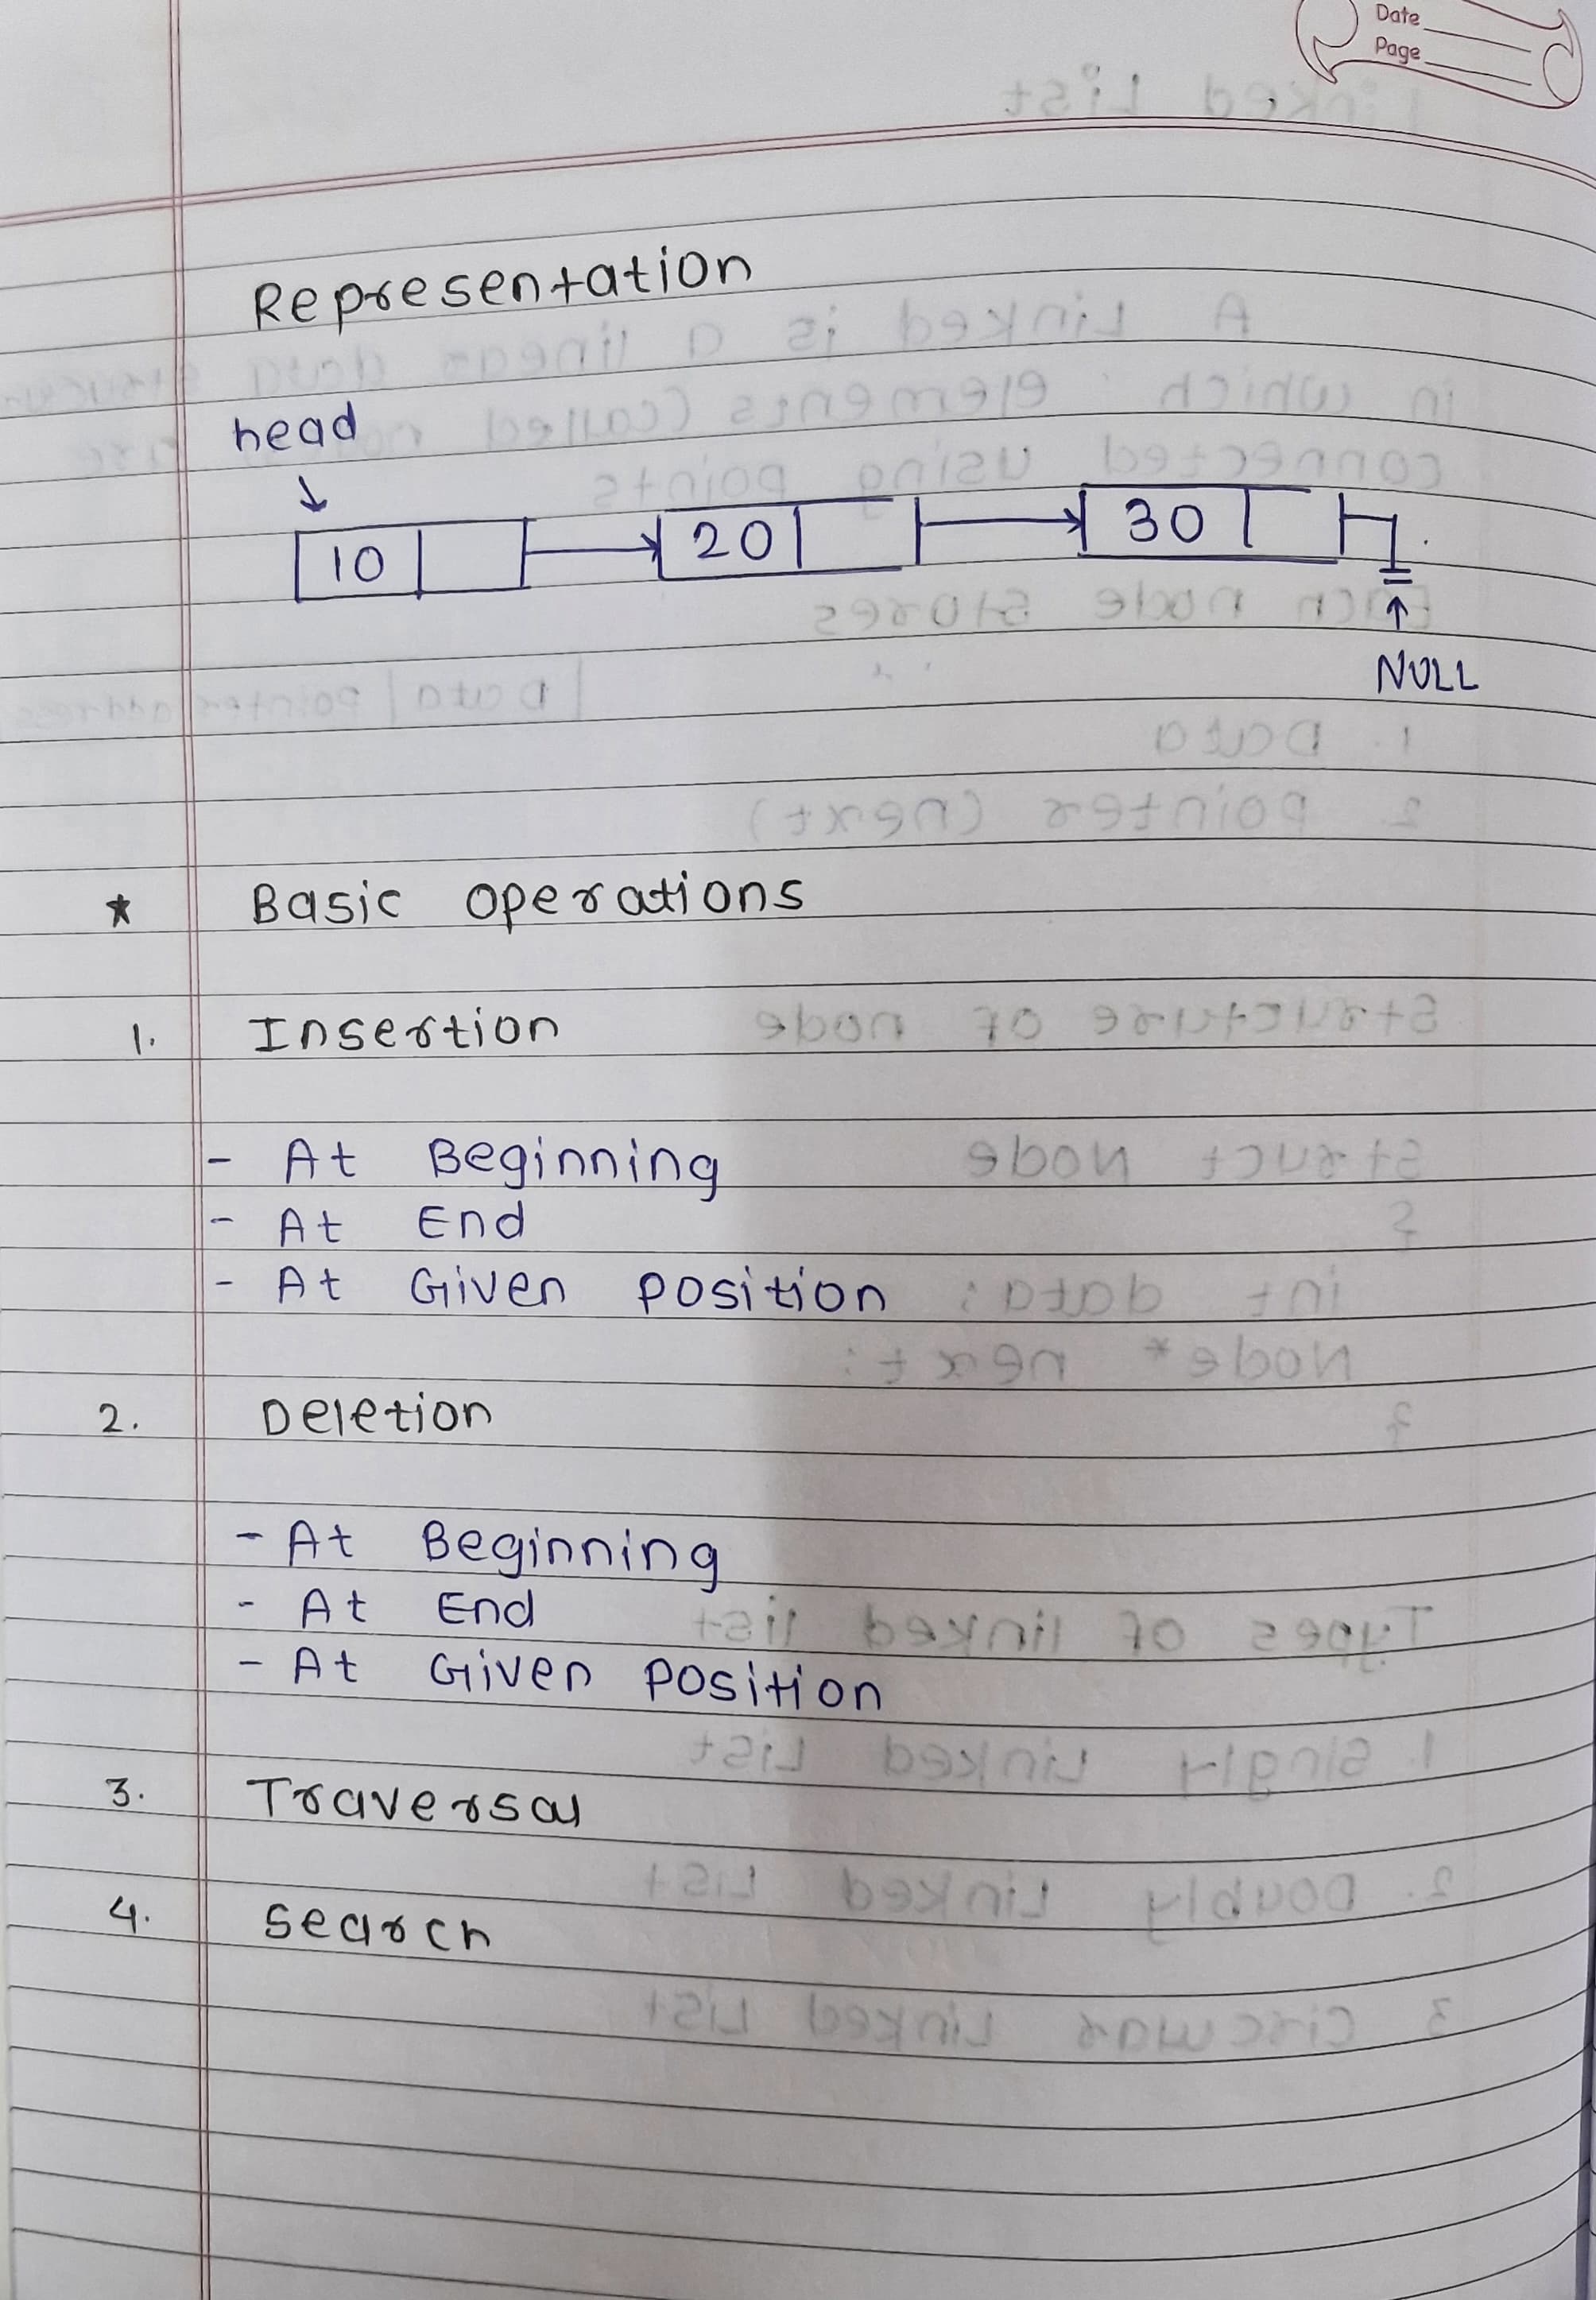 Date
Page
Representation
head
10 20 30
NULL
* Basic operations
1. Insertion
- At Beginning
- At End
- At Given position
2. Deletion
- At Beginning
- At End
- At Given position
3. Traversal
4. search